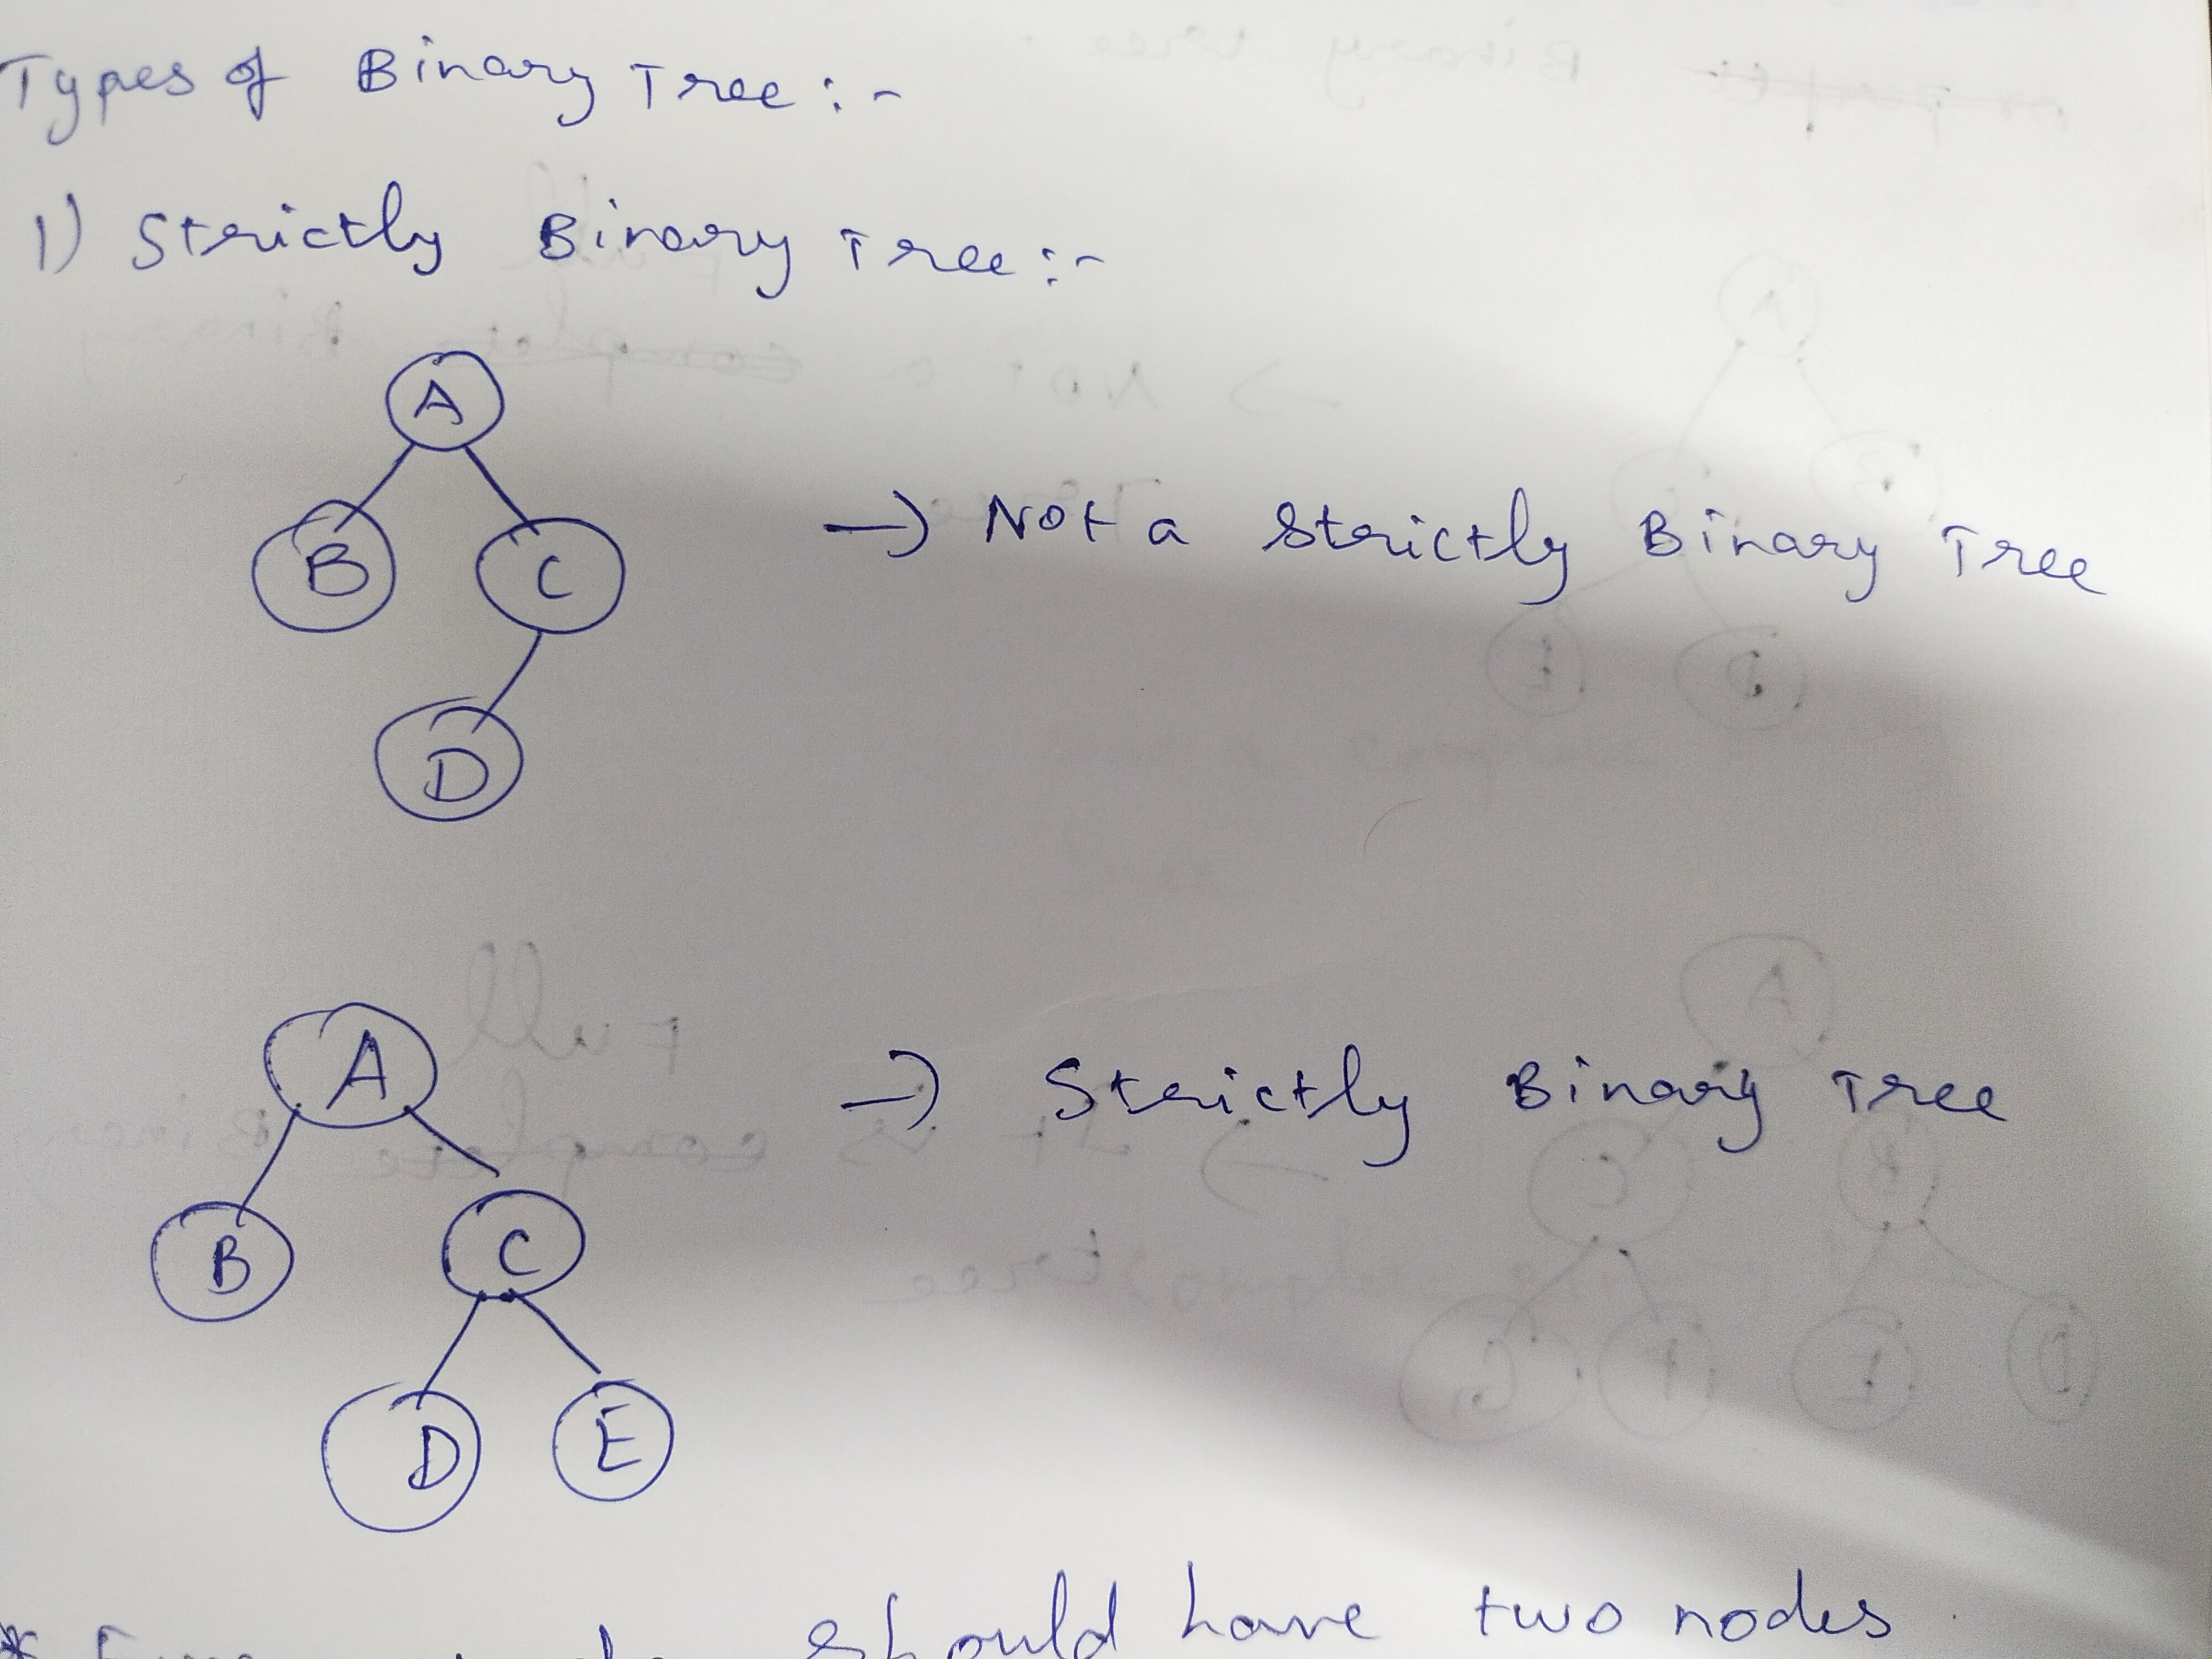 Types of Binary Tree :-
1) Strictly Binary Tree :-
A
B C
D
→ Not a strictly Binary Tree
A
B C
D E
→ Strictly Binary Tree
* should have two nodes